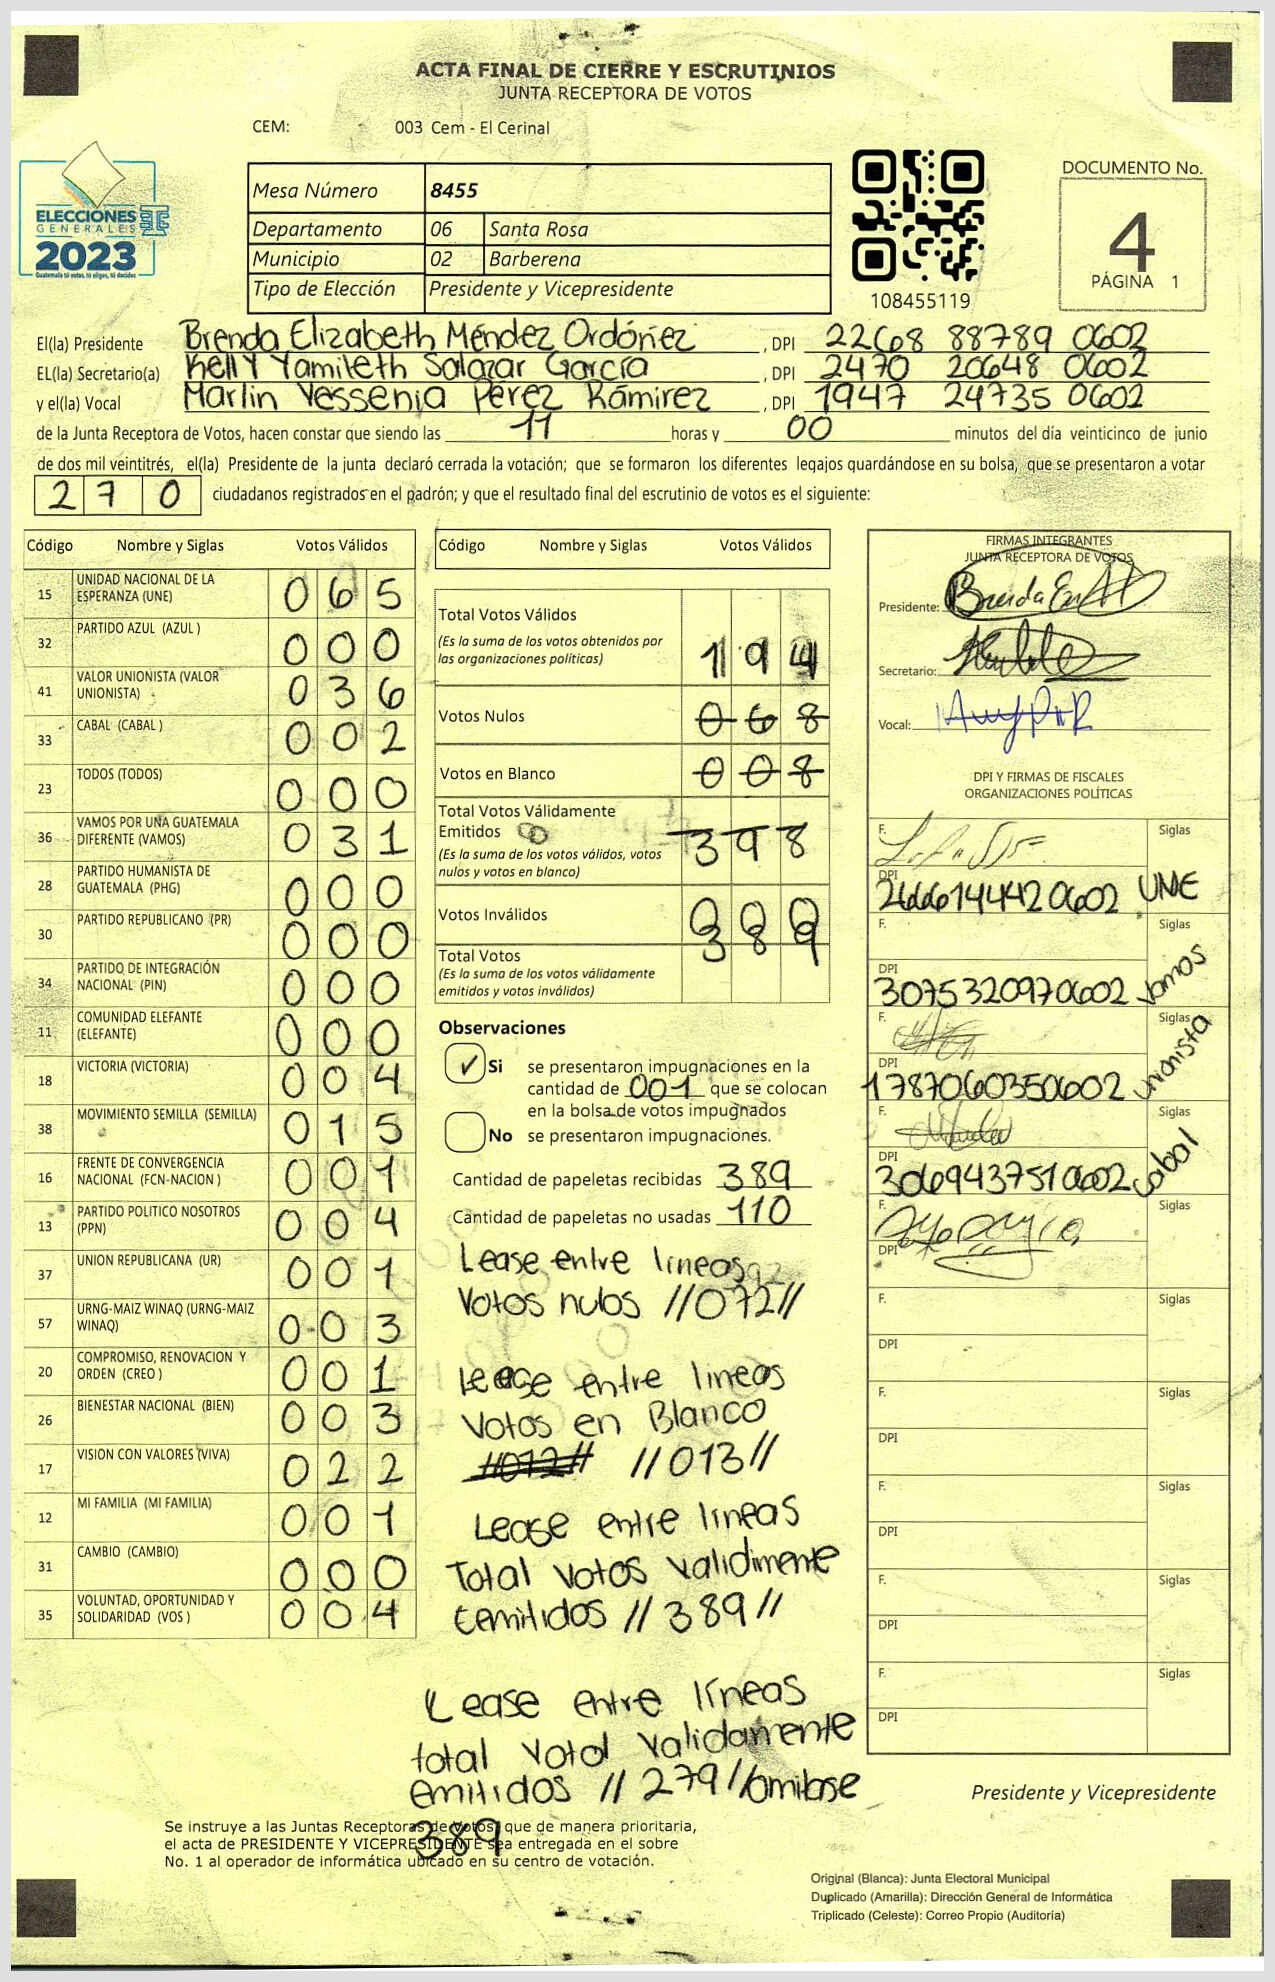 ACTA FINAL DE CIERRE Y ESCRUTINIOS
JUNTA RECEPTORA DE VOTOS
CEM: 003 Cem - El Cerinal
ELECCIONES
GENERALES
2023
Guatemala tú votas, tú eliges, tú decides
Mesa Número 8455
Departamento 06 Santa Rosa
Municipio 02 Barberena
Tipo de Elección Presidente y Vicepresidente
108455119
DOCUMENTO No.
4
PÁGINA 1
El(la) Presidente Brenda Elizabeth Méndez Ordóñez , DPI 2268 88789 0602
EL(la) Secretario(a) Kelly Yamileth Salazar García , DPI 2470 20648 0602
y el(la) Vocal Marlin Yessenia Pérez Rámirez , DPI 1947 24735 0602
de la Junta Receptora de Votos, hacen constar que siendo las 11 horas y 00 minutos del día veinticinco de junio
de dos mil veintitrés, el(la) Presidente de la junta declaró cerrada la votación; que se formaron los diferentes legajos guardándose en su bolsa, que se presentaron a votar
270 ciudadanos registrados en el padrón; y que el resultado final del escrutinio de votos es el siguiente:
Código Nombre y Siglas Votos Válidos
15 UNIDAD NACIONAL DE LA ESPERANZA (UNE) 065
32 PARTIDO AZUL (AZUL ) 000
41 VALOR UNIONISTA (VALOR UNIONISTA) 036
33 CABAL (CABAL ) 002
23 TODOS (TODOS) 000
36 VAMOS POR UNA GUATEMALA DIFERENTE (VAMOS) 031
28 PARTIDO HUMANISTA DE GUATEMALA (PHG) 000
30 PARTIDO REPUBLICANO (PR) 000
34 PARTIDO DE INTEGRACIÓN NACIONAL (PIN) 000
11 COMUNIDAD ELEFANTE (ELEFANTE) 000
18 VICTORIA (VICTORIA) 004
38 MOVIMIENTO SEMILLA (SEMILLA) 015
16 FRENTE DE CONVERGENCIA NACIONAL (FCN-NACION ) 001
13 PARTIDO POLITICO NOSOTROS (PPN) 004
37 UNION REPUBLICANA (UR) 001
57 URNG-MAIZ WINAQ (URNG-MAIZ WINAQ) 003
20 COMPROMISO, RENOVACION Y ORDEN (CREO ) 001
26 BIENESTAR NACIONAL (BIEN) 003
17 VISION CON VALORES (VIVA) 022
12 MI FAMILIA (MI FAMILIA) 001
31 CAMBIO (CAMBIO) 000
35 VOLUNTAD, OPORTUNIDAD Y SOLIDARIDAD (VOS ) 004
Código Nombre y Siglas Votos Válidos
Total Votos Válidos 194
(Es la suma de los votos obtenidos por
las organizaciones políticas)
Votos Nulos 068
Votos en Blanco 008
Total Votos Válidamente
Emitidos 398
(Es la suma de los votos válidos, votos
nulos y votos en blanco)
Votos Inválidos 000
Total Votos 389
(Es la suma de los votos válidamente
emitidos y votos inválidos)
Observaciones
✓ Si se presentaron impugnaciones en la
cantidad de 001 que se colocan
en la bolsa de votos impugnados
No se presentaron impugnaciones.
Cantidad de papeletas recibidas 389
Cantidad de papeletas no usadas 110
Lease entre líneas
Votos nulos //072//
Lease entre lineas
Votos en Blanco
//012// //013//
Lease entre líneas
Total votos validimente
Eemitidos //389//
Lease entre líneas
total Votol Validamente
emitidos //279//omitase
389
FIRMAS INTEGRANTES
JUNTA RECEPTORA DE VOTOS
Presidente:
Secretario:
Vocal:
DPI Y FIRMAS DE FISCALES
ORGANIZACIONES POLÍTICAS
F. Siglas
DPI 2666144420602 UNE
F. Siglas
DPI 3075320970602 Vamos
F. Siglas
DPI 1787060350602 unionista
F. Siglas
DPI 3069437510602 Cabal
F. Siglas
DPI
F. Siglas
DPI
F. Siglas
DPI
F. Siglas
DPI
F. Siglas
DPI
F. Siglas
DPI
Presidente y Vicepresidente
Se instruye a las Juntas Receptoras de Votos, que de manera prioritaria,
el acta de PRESIDENTE Y VICEPRESIDENTE sea entregada en el sobre
No. 1 al operador de informática ubicado en su centro de votación.
Original (Blanca): Junta Electoral Municipal
Duplicado (Amarilla): Dirección General de Informática
Triplicado (Celeste): Correo Propio (Auditoría)